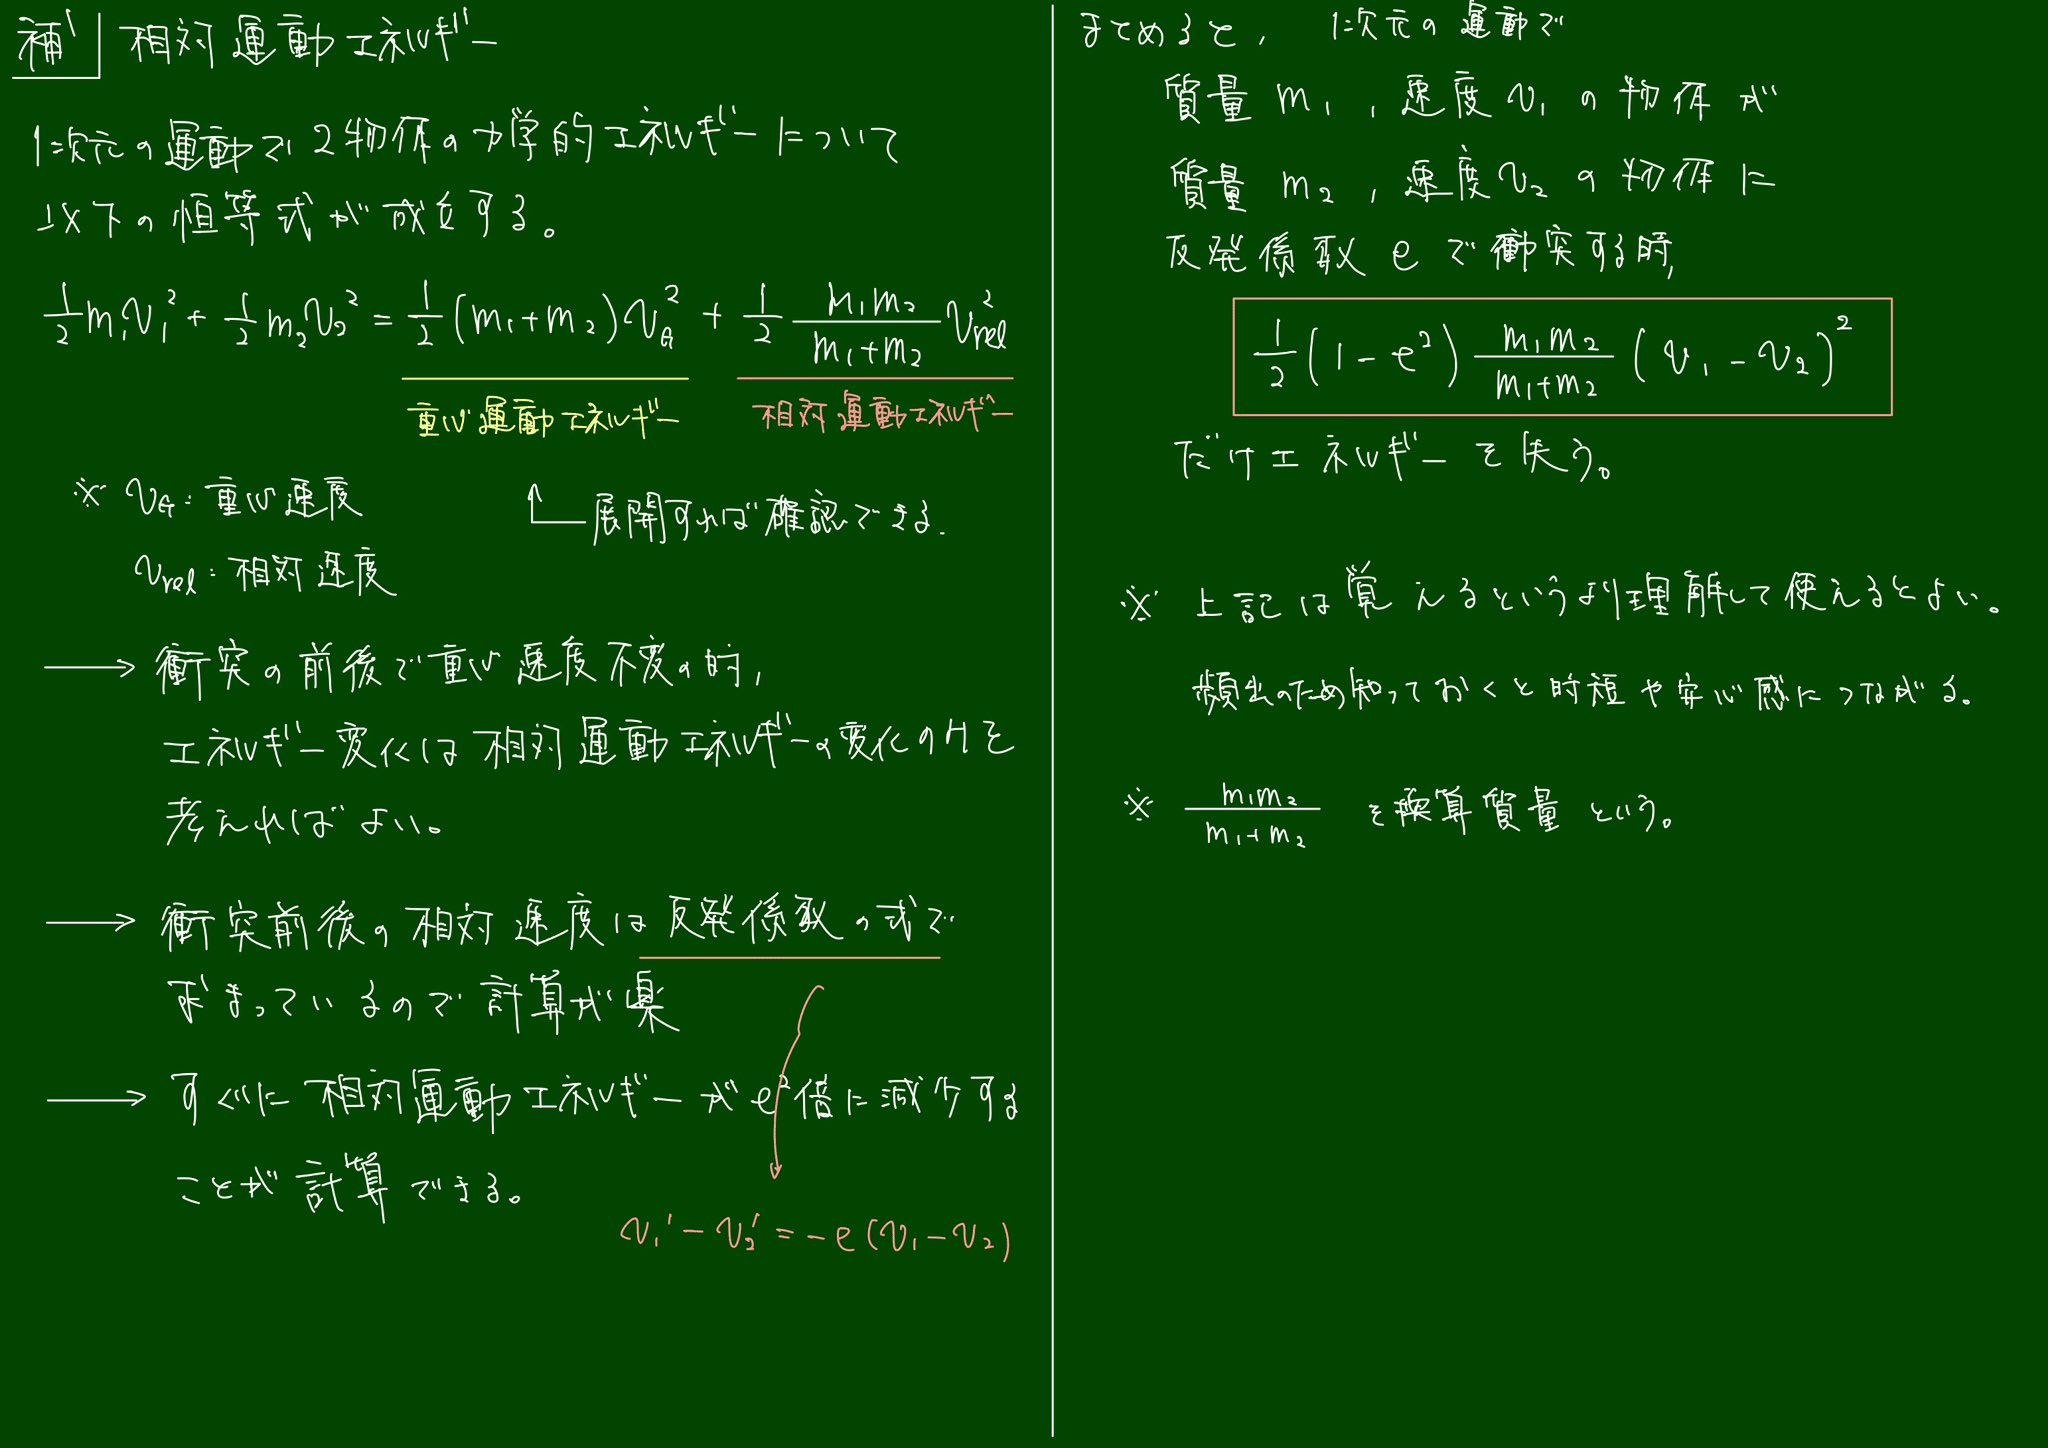 補 相対運動エネルギー
1次元の運動で、2物体の力学的エネルギーについて
以下の恒等式が成立する。
½m₁v₁² + ½m₂v₂² = ½(m₁+m₂)v_G² + ½ m₁m₂/(m₁+m₂) v_rel²
重心運動エネルギー 相対運動エネルギー
※ v_G：重心速度
展開すれば確認できる.
v_rel：相対速度
→ 衝突の前後で重心速度不変の時,
エネルギー変化は相対運動エネルギーの変化のみを
考えればよい。
→ 衝突前後の相対速度は反発係数の式で
求まっているので計算が楽
→ すぐに相対運動エネルギーがe²倍に減少する
ことが計算できる。
v₁' − v₂' = −e(v₁−v₂)
まとめると, 1次元の運動で
質量 m₁, 速度 v₁ の物体が
質量 m₂, 速度 v₂ の物体に
反発係数 e で衝突する時,
½(1−e²) m₁m₂/(m₁+m₂) (v₁−v₂)²
だけエネルギーを失う。
※ 上記は覚えるというより理解して使えるとよい。
頻出のため知っておくと時短や安心感につながる。
※ m₁m₂/(m₁+m₂) を換算質量という。